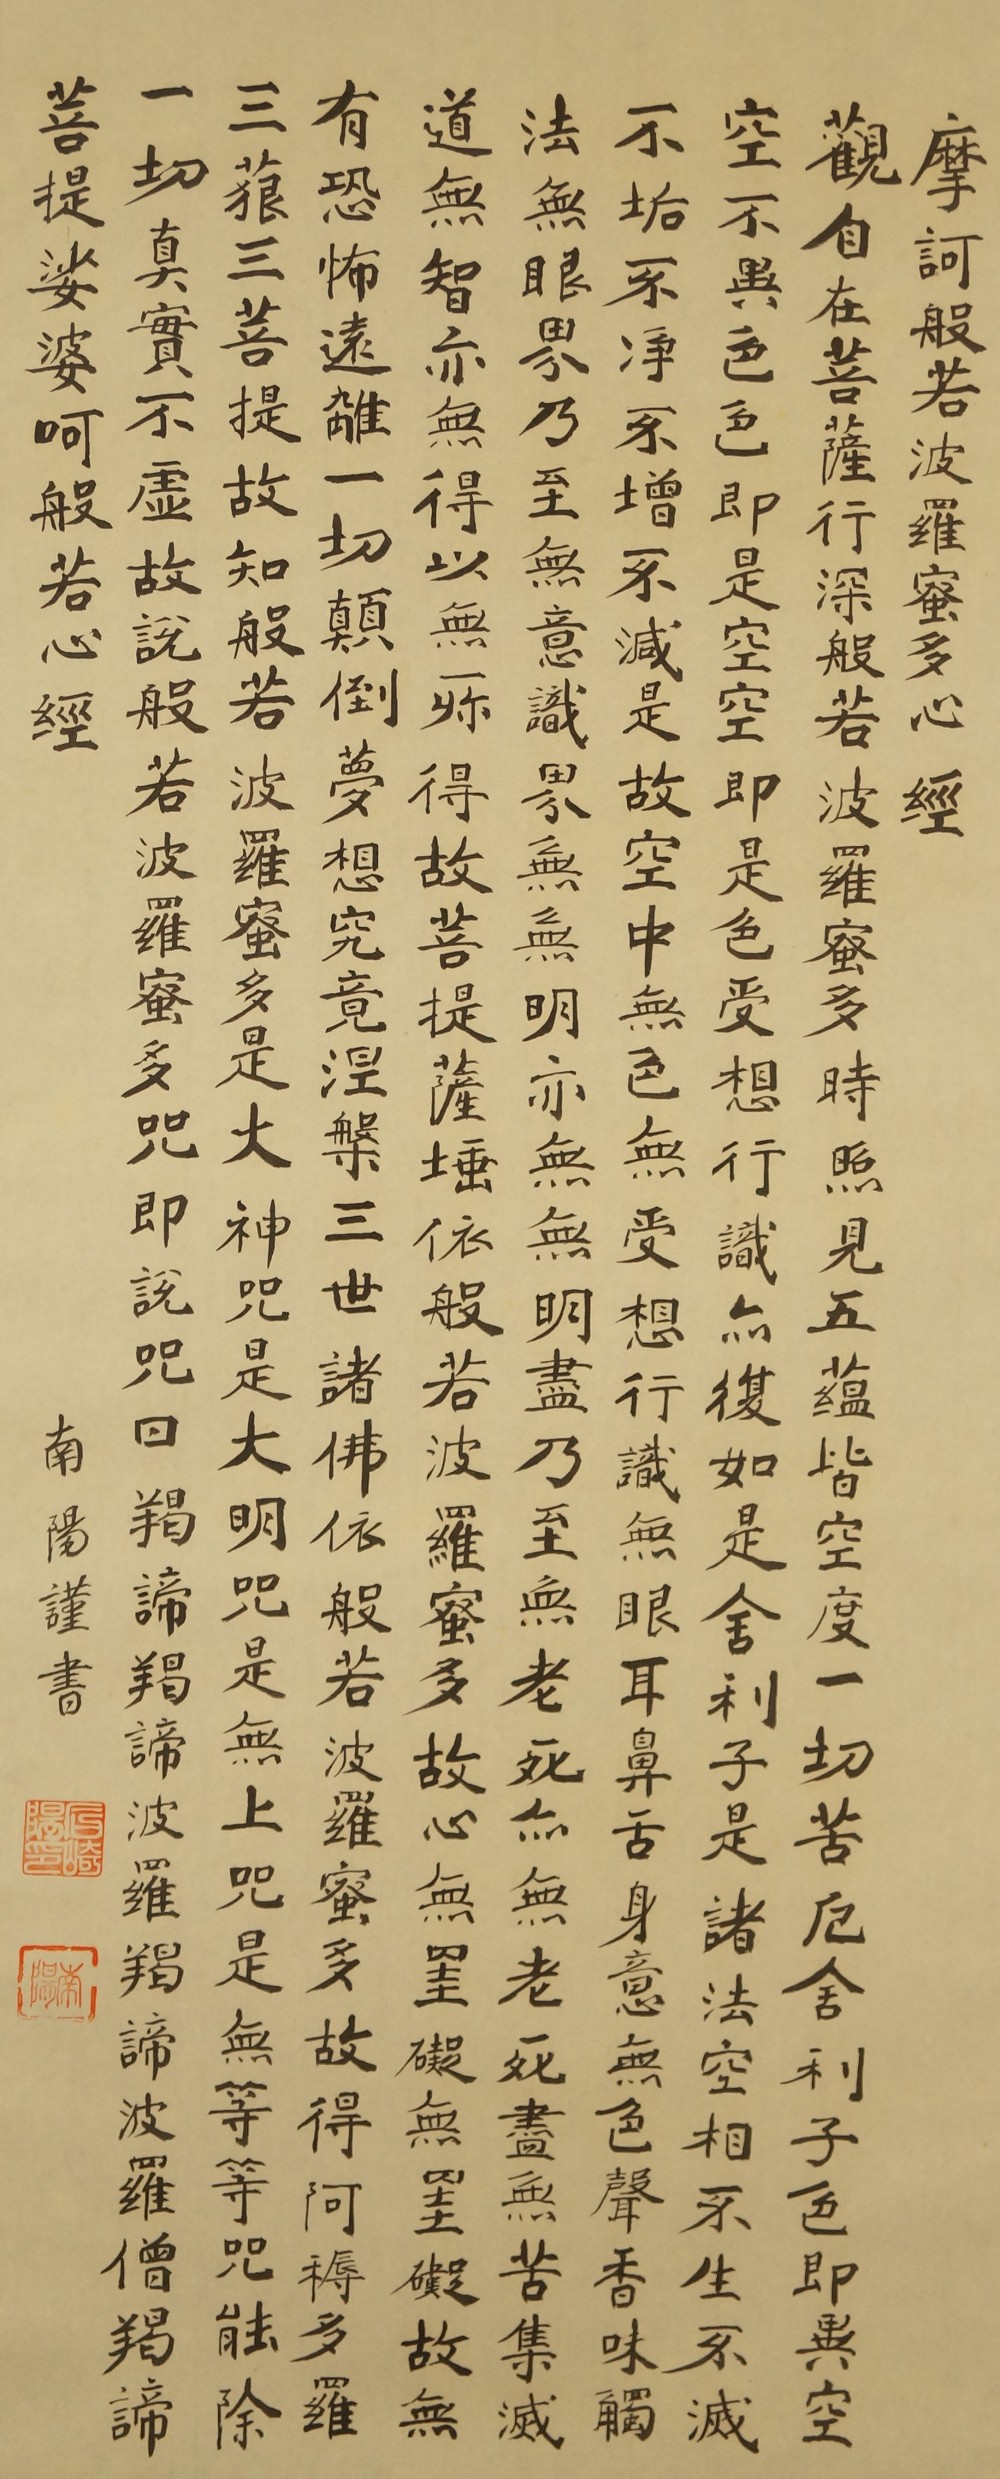 摩訶般若波羅蜜多心經
觀自在菩薩行深般若波羅蜜多時照見五蘊皆空度一切苦厄舍利子色即異空
空不異色色即是空空即是色受想行識亦復如是舍利子是諸法空相不生不滅
不垢不淨不增不減是故空中無色無受想行識無眼耳鼻舌身意無色聲香味觸
法無眼界乃至無意識界無無明亦無無明盡乃至無老死亦無老死盡無苦集滅
道無智亦無得以無所得故菩提薩埵依般若波羅蜜多故心無罣礙無罣礙故無
有恐怖遠離一切顛倒夢想究竟涅槃三世諸佛依般若波羅蜜多故得阿耨多羅
三藐三菩提故知般若波羅蜜多是大神咒是大明咒是無上咒是無等等咒能除
一切真實不虛故說般若波羅蜜多咒即說咒曰羯諦羯諦波羅羯諦波羅僧羯諦
菩提娑婆呵般若心經
南陽謹書
南陽